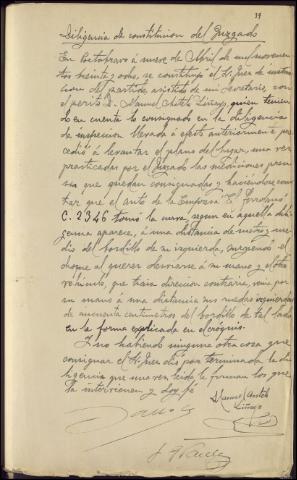 Diligencia de constitución del Juzgado
En á nueve de Abril de mil novecien
tos treinta y ocho, se constituyó el Sr. Juez de instruc
cion del partido, asistido de mi Secretario, con
el perito D. Manuel quien tenien
do en cuenta lo consignado en la diligencia
de inspeccion llevada á efecto anteriormente pro
cedió á levantar el plano del lugar, una vez
practicadas por el Juzgado las mediciones preci
sas que quedan consignadas y haciendose cons
tar que el auto de la Empresa
C. 2346 tomó la curva, segun en aquella dili
gencia aparece, á una distancia de metro y me
dio del bordillo de su izquierda, surgiendo el
choque al querer desviarse á su mano y el otro
vehiculo, que traia direccion contraria, venir por
su mano á una distancia sus ruedas
de cincuenta centimetros del bordillo de tal lado
en la forma explicada en el cróquis.
Y no habiendo ninguna otra cosa que
consignar el Sr. Juez dió por terminada la di
ligencia que una vez leida la firman los que
la intervienen y doy fé
Manuel